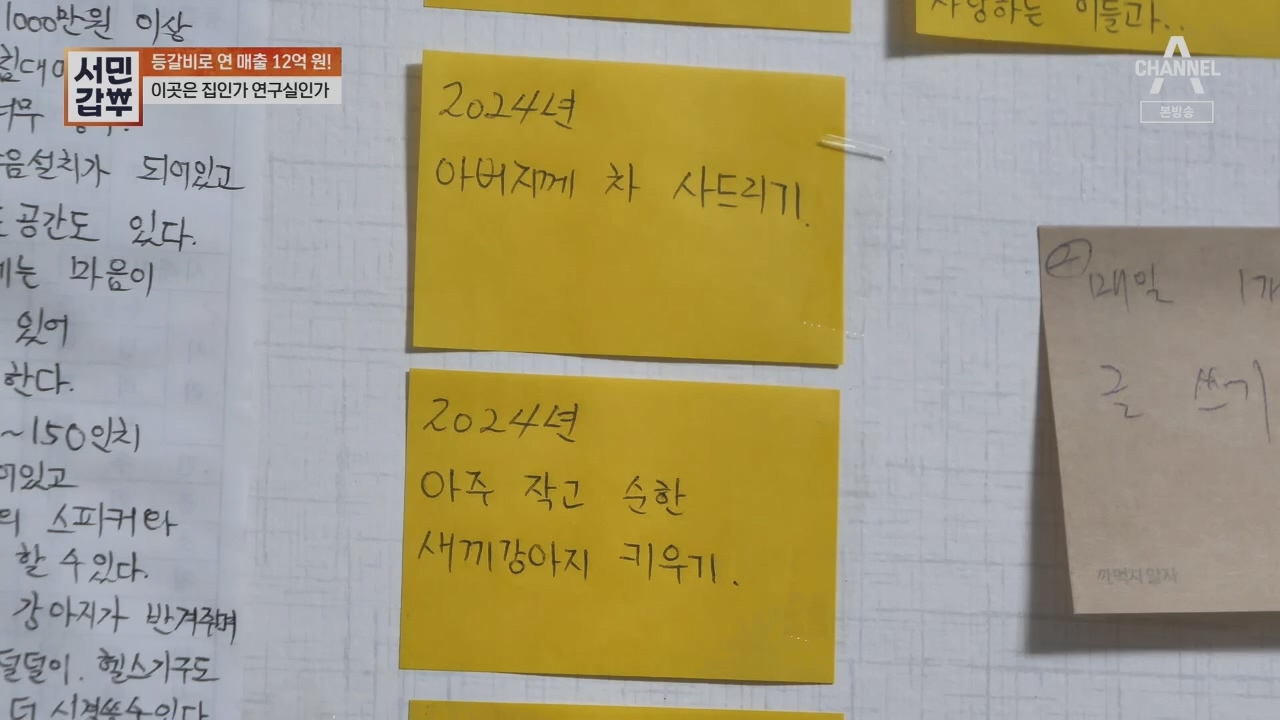 1000만원 이상
되어있고
공간도 있다.
마음이
있어
한다.
~150인치
스피커와
할 수 있다.
강아지가 반겨주며
헬스기구도
더
서민갑부
등갈비로 연 매출 12억 원!
이곳은 집인가 연구실인가
사랑하는 이들과..
2024년
아버지께 차 사드리기.
2024년
아주 작고 순한
새끼강아지 키우기.
CHANNEL A
본방송
매일 1개
글 쓰기
까먹지말자